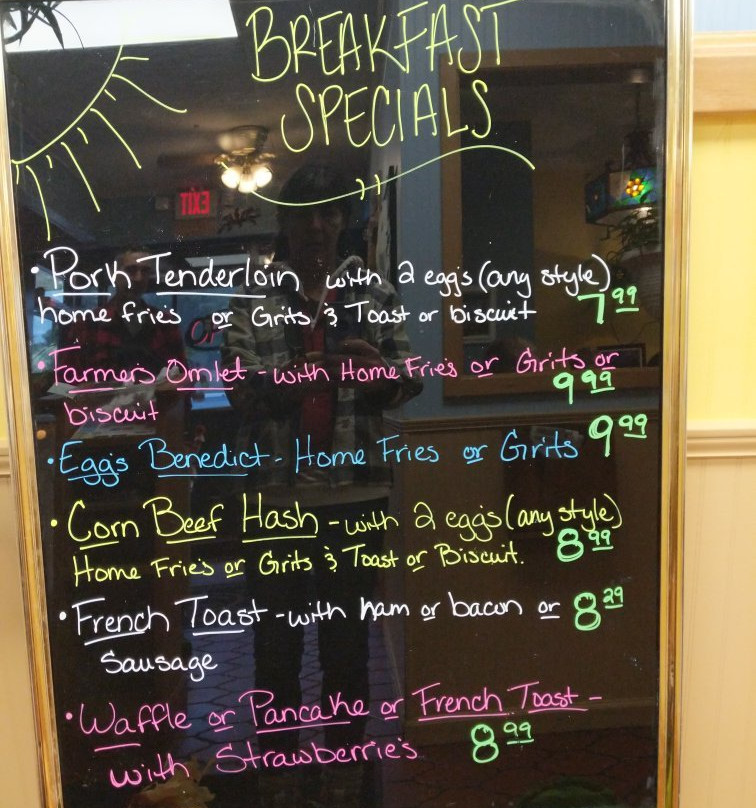 BREAKFAST
SPECIALS
EXIT
• Pork Tenderloin with 2 eggs (any style)
home fries or Grits & Toast or biscuit 7.99
• Farmers Omlet - with Home Fries or Grits or
biscuit 9.99
• Eggs Benedict - Home Fries or Grits 9.99
• Corn Beef Hash - with 2 eggs (any style)
Home Fries or Grits & Toast or Biscuit. 8.99
• French Toast - with ham or bacon or 8.29
Sausage
• Waffle or Pancake or French Toast -
with Strawberries 8.99